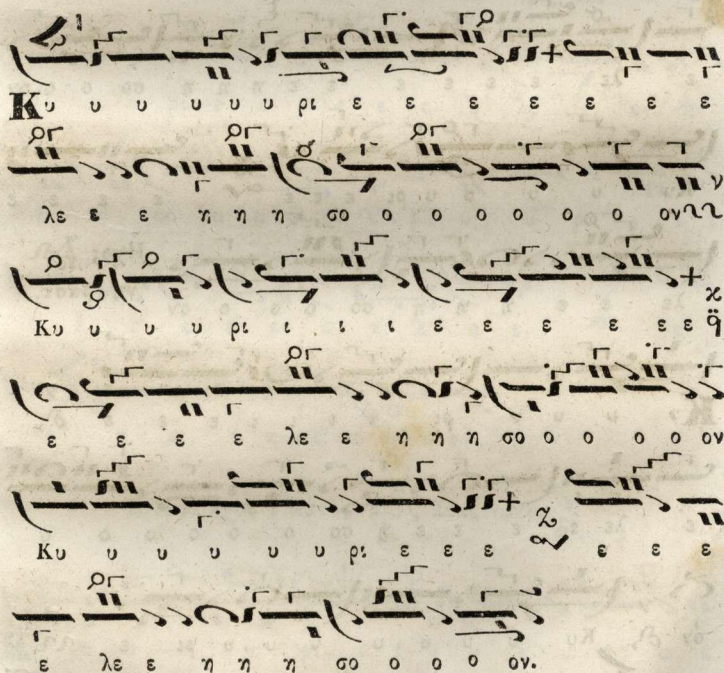 Κυ υ υ υ υ υ ρι ε ε ε ε ε ε ε
λε ε ε η η η σο ο ο ο ο ο ο ον
Κυ υ υ υ ρι ι ι ι ε ε ε ε ε ε
ε ε ε ε λε ε η η η σο ο ο ο ο ον
Κυ υ υ υ υ υ ρι ε ε ε ε ε ε
ε λε ε η η η σο ο ο ο ον.